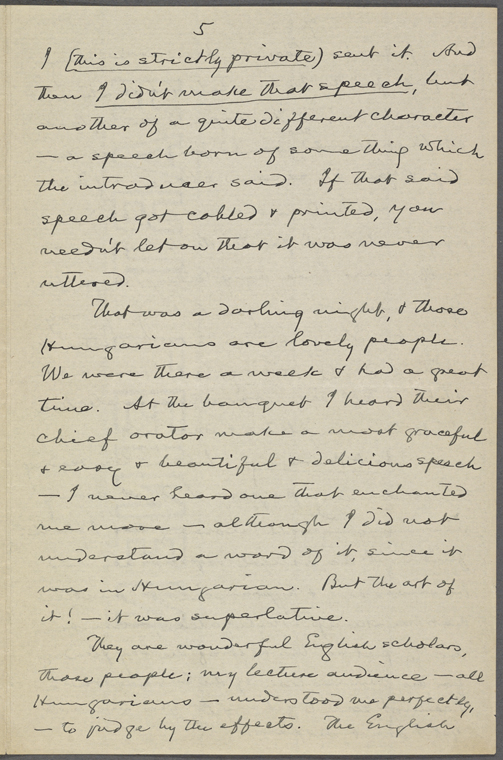 5
I (this is strictly private) sent it. And
then I didn't make that speech, but
another of a quite different character
— a speech born of something which
the introducer said. If that said
speech got cabled & printed, you
needn't let on that it was never
uttered.
That was a darling night, & those
Hungarians are lovely people.
We were there a week & had a great
time. At the banquet I heard their
chief orator make a most graceful
& easy & beautiful & delicious speech
— I never heard one that enchanted
me more — although I did not
understand a word of it, since it
was in Hungarian. But the art of
it! — it was superlative.
They are wonderful English scholars,
those people; my lecture audience — all
Hungarians — understood me perfectly,
— to judge by the effects. The English